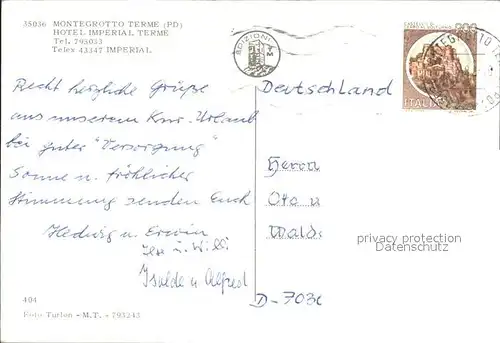 35036 MONTEGROTTO TERME (PD)
HOTEL IMPERIAL TERME
Tel. 793033
Telex 43347 IMPERIAL
EDIZIONI AM
ITALIA
Deutschland
Recht herzliche Grüße
aus unserem Kur-Urlaub
bei guter "Versorgung"
Sonne u. fröhlicher
Stimmung senden Euch
Hedwig u. Erwin
Ilse u. Willi
Isolde u. Alfred
Herrn
Otto u
Wald
privacy protection
Datenschutz
D-703
404
Foto Turlon - M.T. - 793243